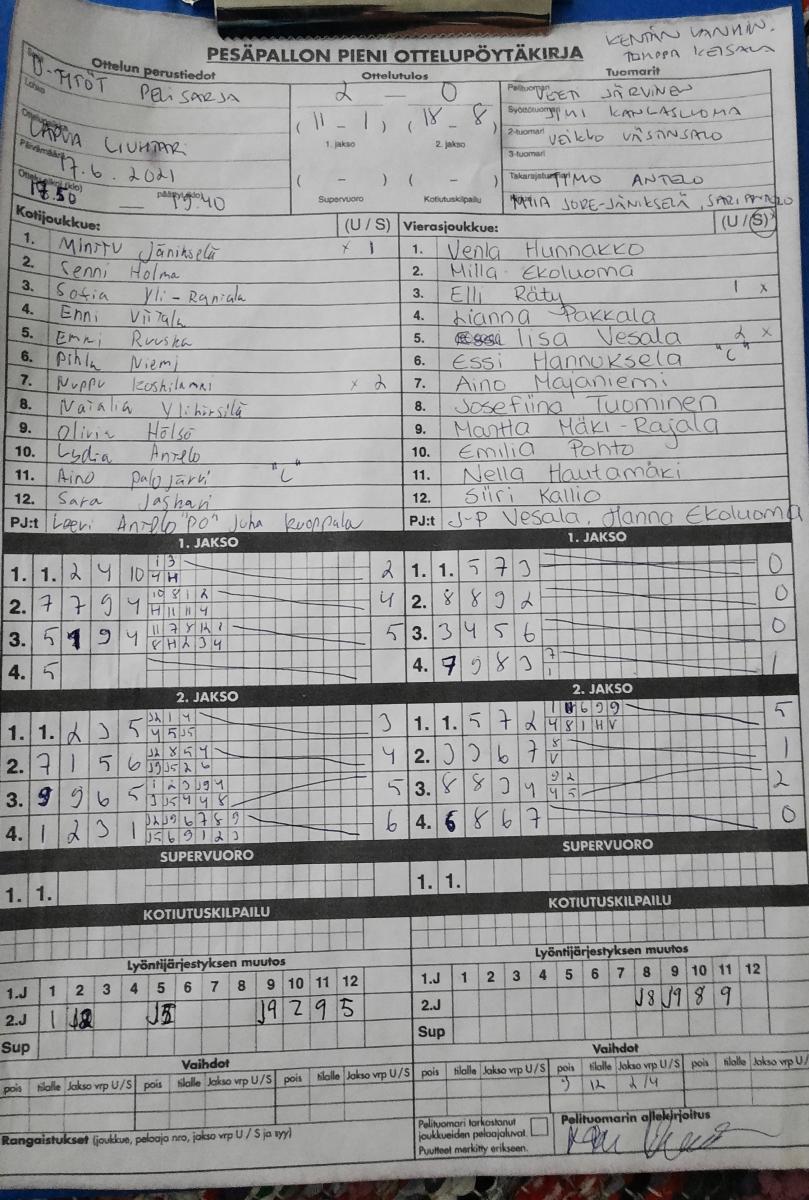 KENTÄN VANHIN.
PESÄPALLON PIENI OTTELUPÖYTÄKIRJA
Ottelun perustiedot
Ottelutulos
Tuomarit
D-TYTÖT PELISARJA
2 – 0
Pelituomari VEETI JÄRVINEN
(11 – 1) (18 – 8)
Syöttötuomari KANGASLUOMA
1. jakso 2. jakso
LAPUA LIUHTARI
2-tuomari VEIKKO VÄSTINSALO
Päivämäärä 17.6.2021
3-tuomari
( – ) ( – )
Takarajatuomari TIMO ANTELO
17.50 – 19.40
Supervuoro Kotiutuskilpailu
Kotijoukkue: (U / S)
1. Minttu Jänikselä x 1
2. Senni Holma
3. Sofia Yli-Rantala
4. Enni Viitala
5. Emmi Ruuska
6. Pihla Niemi
7. Nuppu Koskilammi x 2
8. Natalia Ylihirsilä
9. Olivia Hölsö
10. Lydia Antelo
11. Aino Palojärvi "L"
12. Sara Jashari
PJ:t Leevi Antelo "PO" Juha Kuoppala
Vierasjoukkue: (U / S)
1. Venla Hunnakko
2. Milla Ekoluoma
3. Elli Räty 1 x
4. Lianna Pakkala
5. Iisa Vesala 2 x
6. Essi Hannuksela "L"
7. Aino Majaniemi
8. Josefiina Tuominen
9. Martta Mäki-Rajala
10. Emilia Pohto
11. Nella Hautamäki
12. Siiri Kallio
PJ:t J-P Vesala, Hanna Ekoluoma
1. JAKSO
1. 1. 2 4 10 1 3 2
4 H
2. 7 7 9 4 10 8 1 2 4
H 11 11 4
3. 5 1 9 4 11 7 8 12 1 5
8 H 2 3 4
4. 5
1. JAKSO
1. 1. 5 7 3 0
2. 8 8 9 2 0
3. 3 4 5 6 0
4. 7 9 8 3 7 1
1
2. JAKSO
1. 1. 2 3 5 J2 1 4 3
4 5 J5
2. 7 1 5 6 J2 8 5 4 4
J9 J5 2 6
3. 9 9 6 5 1 2 3 J9 4 5
3 J5 4 4 8
4. 1 2 3 1 J2 J9 6 7 8 9 6
J5 6 9 1 2 3
2. JAKSO
1. 1. 5 7 2 5
4 8 1 H V
2. 3 3 6 7 8 1
V
3. 8 8 3 4 9 2 2
4 5
4. 6 8 6 7 0
SUPERVUORO
1. 1.
SUPERVUORO
1. 1.
KOTIUTUSKILPAILU
KOTIUTUSKILPAILU
Lyöntijärjestyksen muutos
1.J 1 2 3 4 5 6 7 8 9 10 11 12
2.J 1 J2 J5 J9 2 9 5
Sup
Lyöntijärjestyksen muutos
1.J 1 2 3 4 5 6 7 8 9 10 11 12
2.J J8 J9 8 9
Sup
Vaihdot
pois tilalle Jakso vrp U/S pois tilalle Jakso vrp U/S pois tilalle Jakso vrp U/S
Vaihdot
pois tilalle Jakso vrp U/S pois tilalle Jakso vrp U/S pois tilalle Jakso vrp U/S
9 12 2/4
Rangaistukset (joukkue, pelaaja nro, jakso vrp U / S ja syy)
Pelituomari tarkastanut
joukkueiden pelaajaluvat.
Puutteet merkitty erikseen.
Pelituomarin allekirjoitus